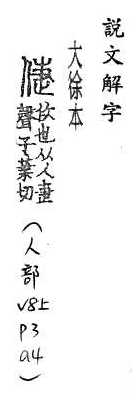 説文解字
大徐本
倢
佽也从人疌
聲子葉切
（人部 v8上 p3 a4）